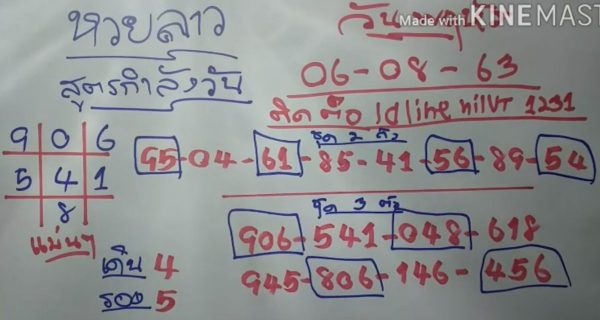 หวยลาว
Made with KINEMAST
สูตรกำลังวัน
06-08-63
ติดต่อ id line nilVT 1231
9 0 6
5 4 1
8
แม่นๆ
ชุด 2 ตัว
95-04-61-85-41-56-89-54
ชุด 3 ตัว
906-541-048-618
945-806-146-456
เดิน 4
รอง 5